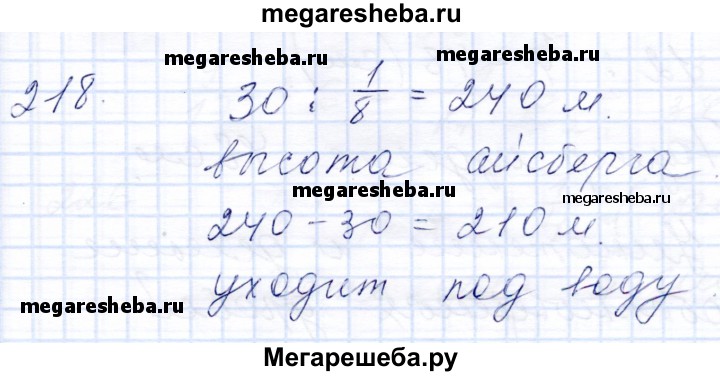 megaresheba.ru
218. 30 : 1/8 = 240 м.
megaresheba.ru
высота айсберга
megaresheba.ru megaresheba.ru
240 - 30 = 210 м.
уходит под воду.
megaresheba.ru
Мегарешеба.ру